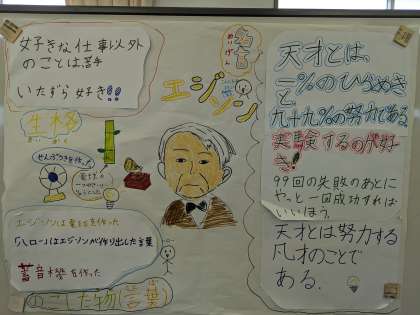 好きな仕事以外
のことは苦手
いたずら好き!!
性格
せいかく
せんぷうきを作った
名言
めいげん
エジソン
エジソンは電球を作った
「ハロー」はエジソンが作り出した言葉
蓄音機を作った
のこした物(言葉)
天才とは、
一%のひらめき
と
九十九%の努力である
実験するのが好
き!
99回の失敗のあとに
やっと一回成功すれば
いいほう。
天才とは努力する
凡才のことで
ある。